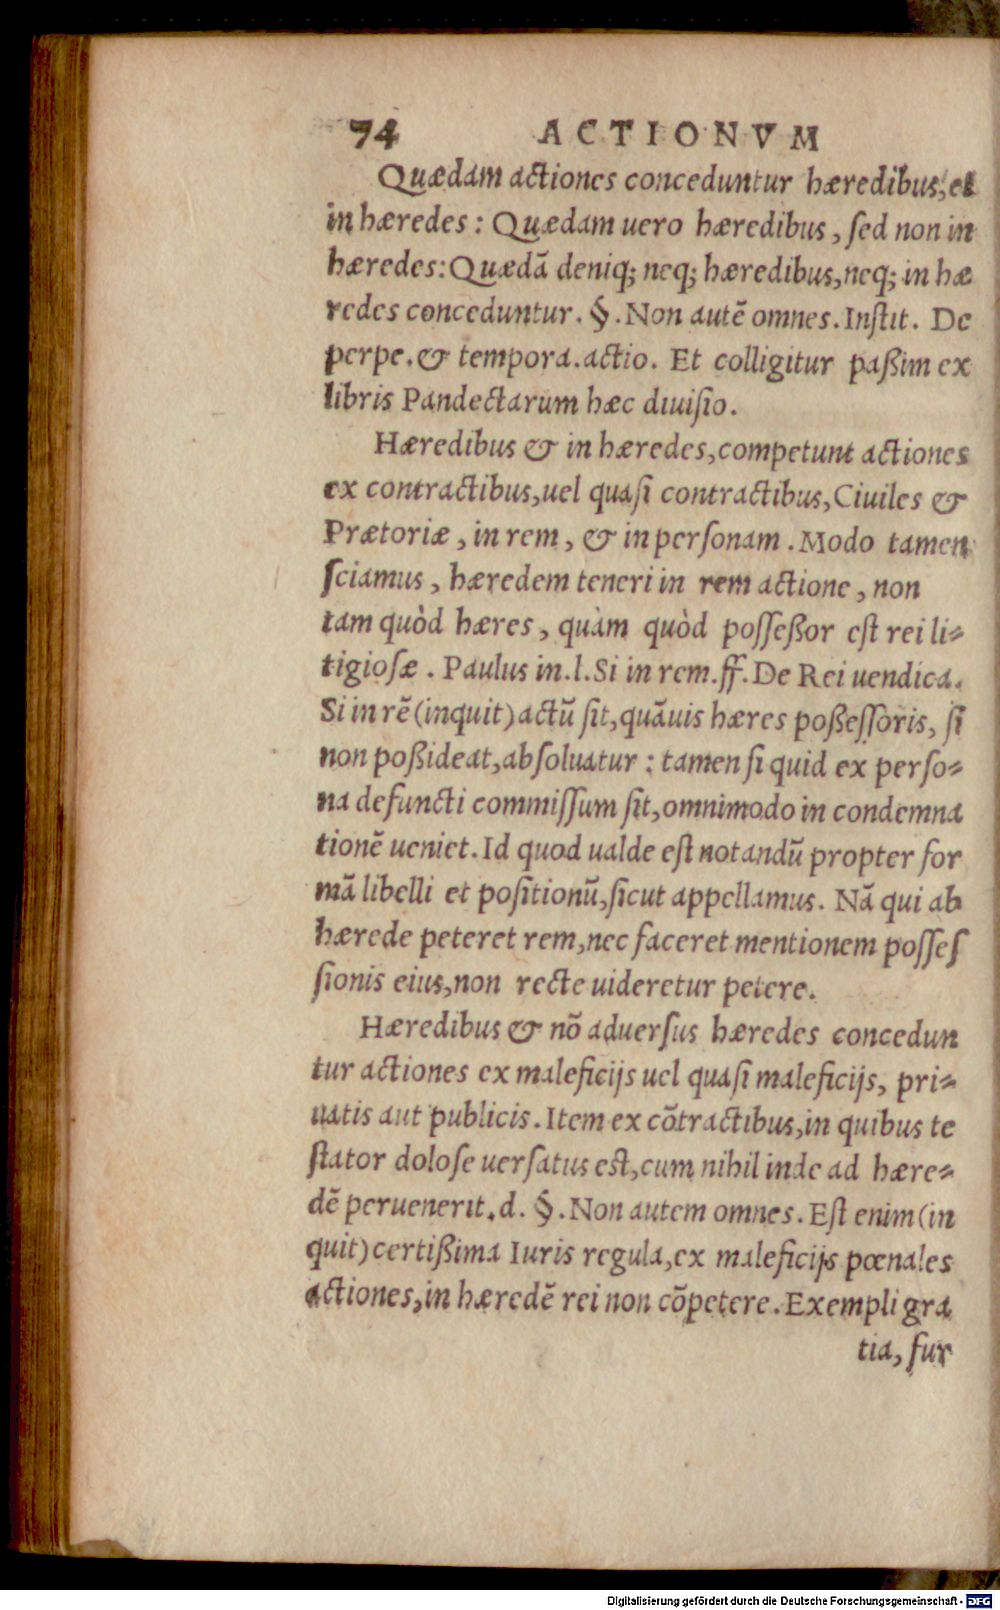 74 ACTIONVM
Quædam actiones conceduntur hæredibus, et
in hæredes: Quædam uero hæredibus, ſed non in
hæredes: Quædā deniq; neq; hæredibus, neq; in hæ
redes conceduntur. §. Non autē omnes. Inſtit. De
perpe. & tempora. actio. Et colligitur paßim ex
libris Pandectarum hæc diuiſio.
Hæredibus & in hæredes, competunt actiones
ex contractibus, uel quaſi contractibus, Ciuiles &
Prætoriæ, in rem, & in perſonam. Modo tamen
ſciamus, hæredem teneri in rem actione, non
tam quòd hæres, quàm quòd poſſeßor eſt rei li-
tigioſæ. Paulus in. l. Si in rem. ff. De Rei uendica.
Si in rē (inquit) actū ſit, quāuis hæres poßeſſoris, ſi
non poßideat, abſoluatur: tamen ſi quid ex perſo-
na defuncti commiſſum ſit, omnimodo in condemna
tionē ueniet. Id quod ualde eſt notandū propter for
mā libelli et poſitionū, ſicut appellamus. Nā qui ab
hærede peteret rem, nec faceret mentionem poſſeſ
ſionis eius, non recte uideretur petere.
Hæredibus & nō aduerſus hæredes concedun
tur actiones ex maleficijs uel quaſi maleficijs, pri-
uatis aut publicis. Item ex cōtractibus, in quibus te
ſtator doloſe uerſatus eſt, cum nihil inde ad hære-
dē peruenerit. d. §. Non autem omnes. Eſt enim (in
quit) certißima Iuris regula, ex maleficijs pœnales
actiones, in hæredē rei non cōpetere. Exempli gra
tia, fur
Digitalisierung gefördert durch die Deutsche Forschungsgemeinschaft - DFG